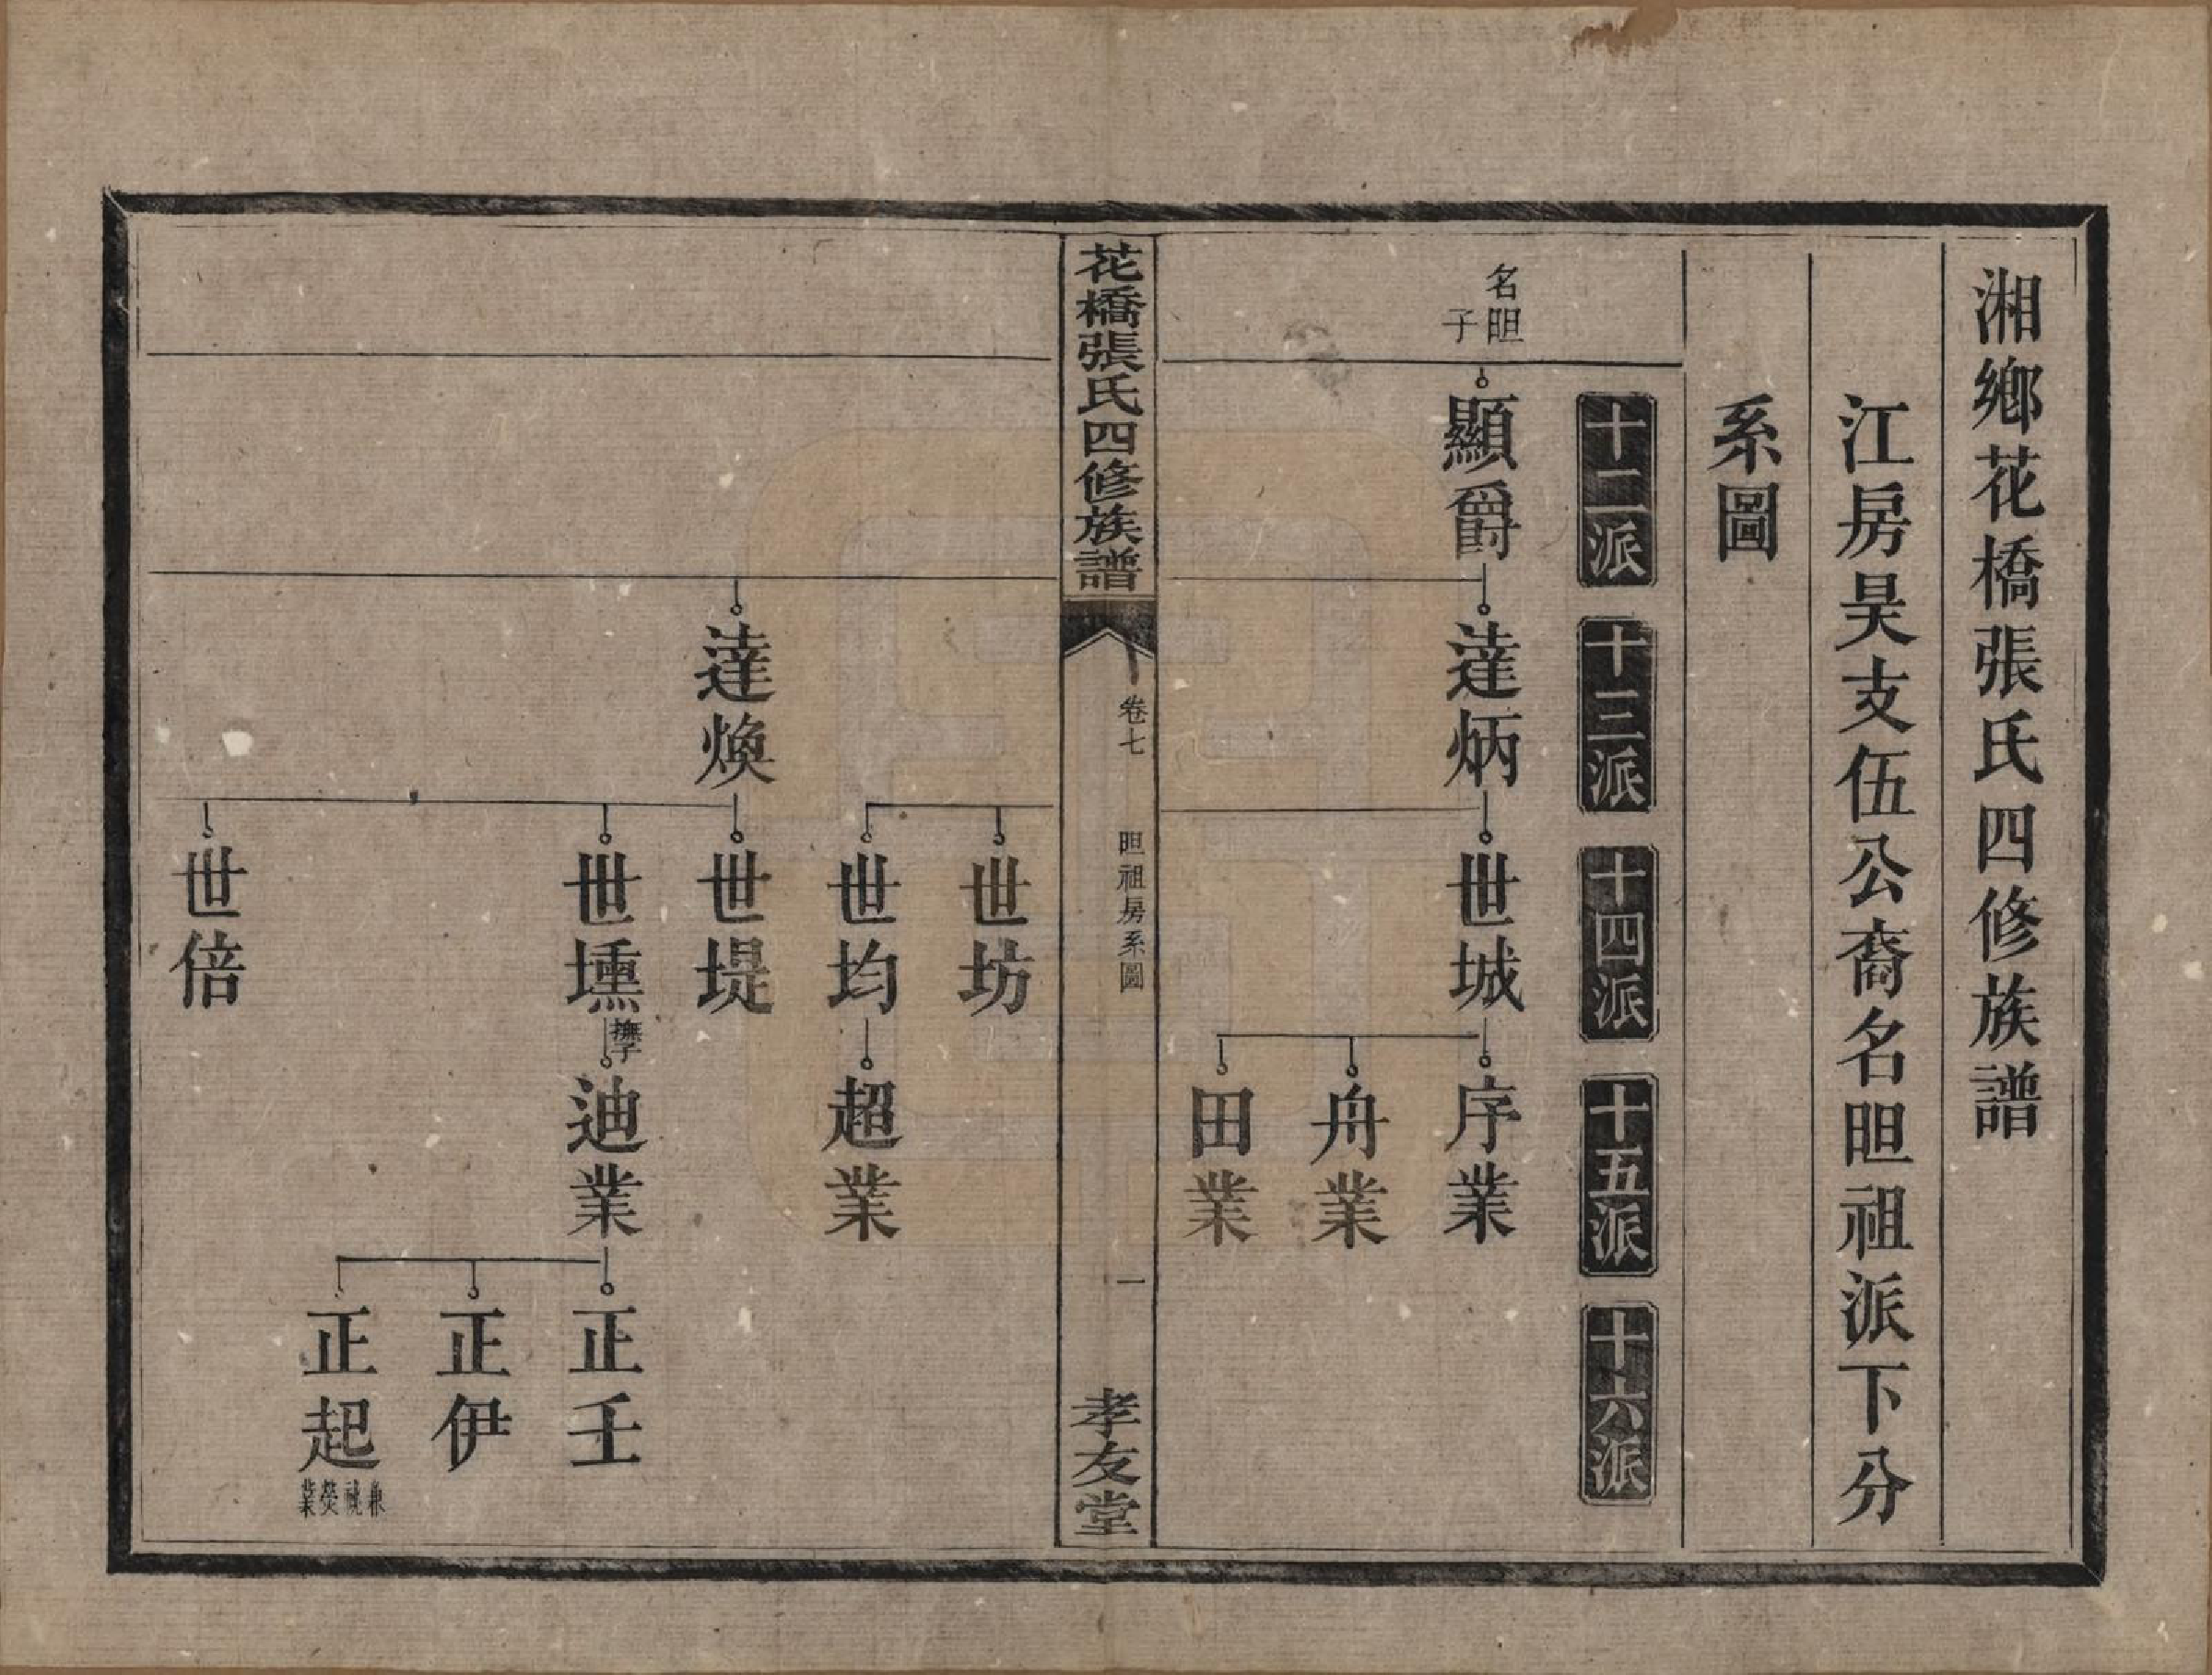 湘鄉花橋張氏四修族譜
江房昊支伍公裔名昛祖派下分
系圖
十二派
十三派
十四派
十五派
十六派
名昛
子
顯爵
達炳
世城
序業
舟業
田業
花橋張氏四修族譜
卷七
昛祖房系圖
一
孝友堂
世坊
世均
超業
達煥
世堤
世壎
撫子
迪業
正壬
正伊
正起
兼祧熒業
世倍